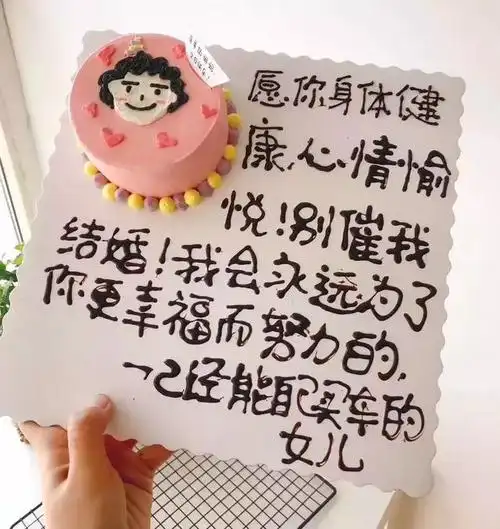 愿你身体健
康,心情愉
悦!别催我
结婚!我会永远为了
你更幸福而努力的,
一已经能配买车的
女儿